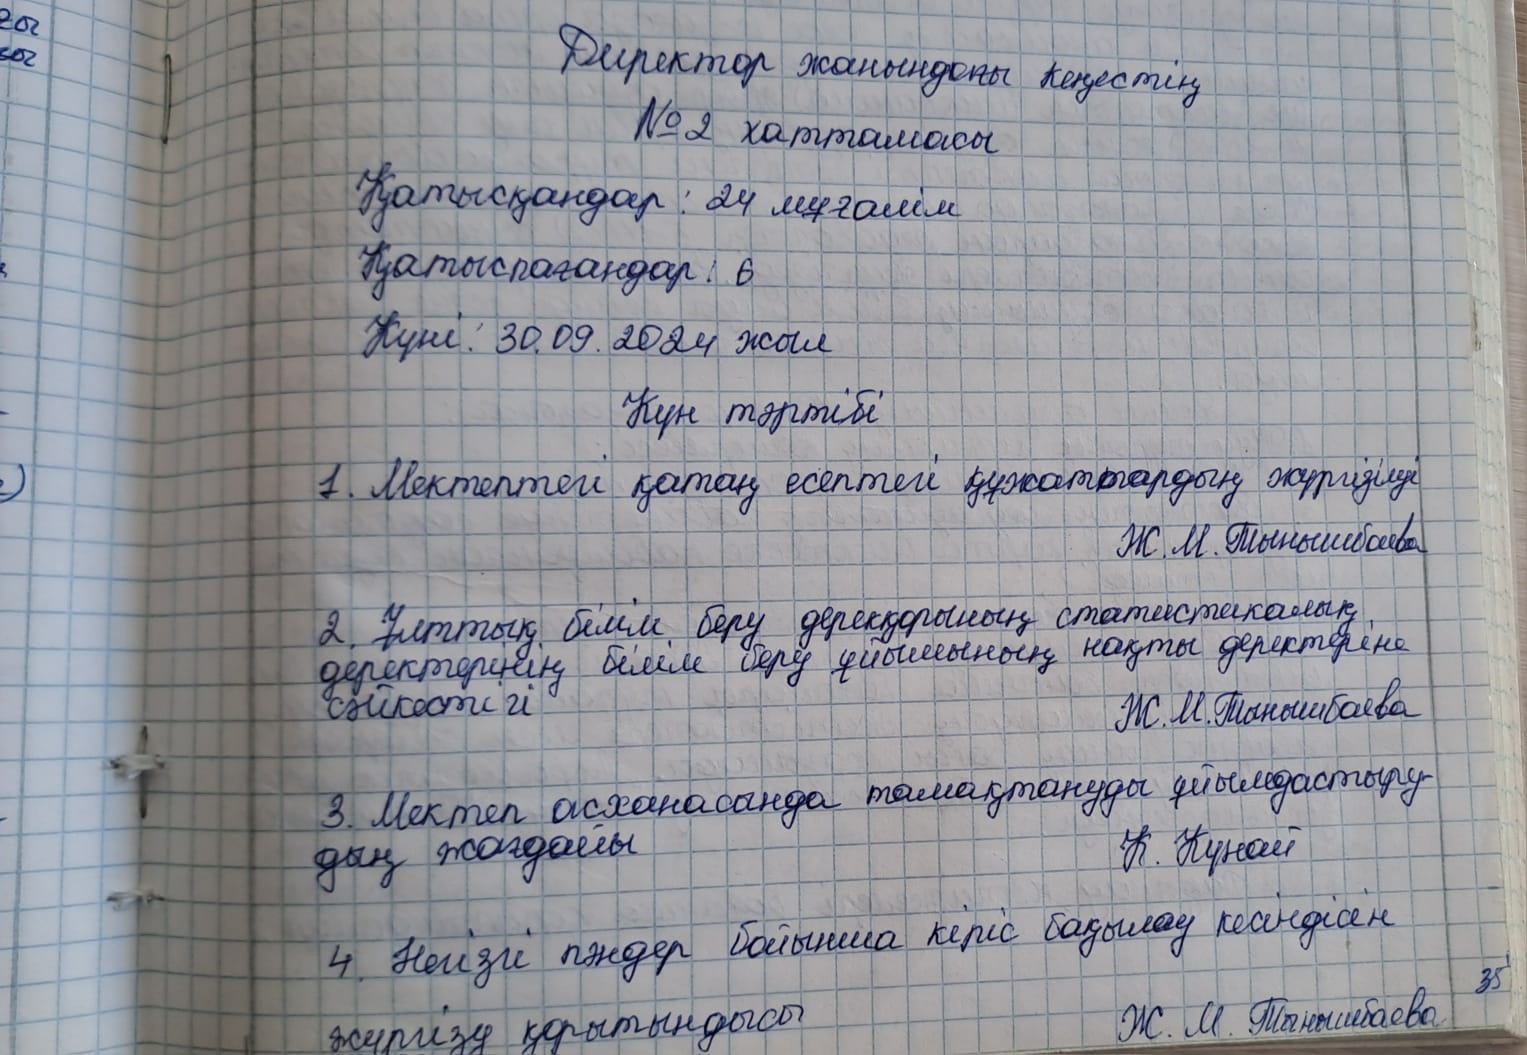 Директор жанындағы кеңестің
№2 хаттамасы
Қатысқандар: 24 мұғалім
Қатыспағандар: 6
Күні: 30.09.2024 жыл
Күн тәртібі
1. Мектептегі қатаң есептегі құжаттардың жүргізілуі
Ж.М.Тынышбаева
2. Ұлттық білім беру дерекқорының статистикалық
деректерінің білім беру ұйымының нақты деректеріне
сәйкестігі Ж.М.Тынышбаева
3. Мектеп асханасында тамақтануды ұйымдастыру-
дың жағдайы К. Күнай
4. Негізгі пәндер бойынша кіріс бақылау кесіндісін
жүргізу қорытындысы Ж.М.Тынышбаева
35